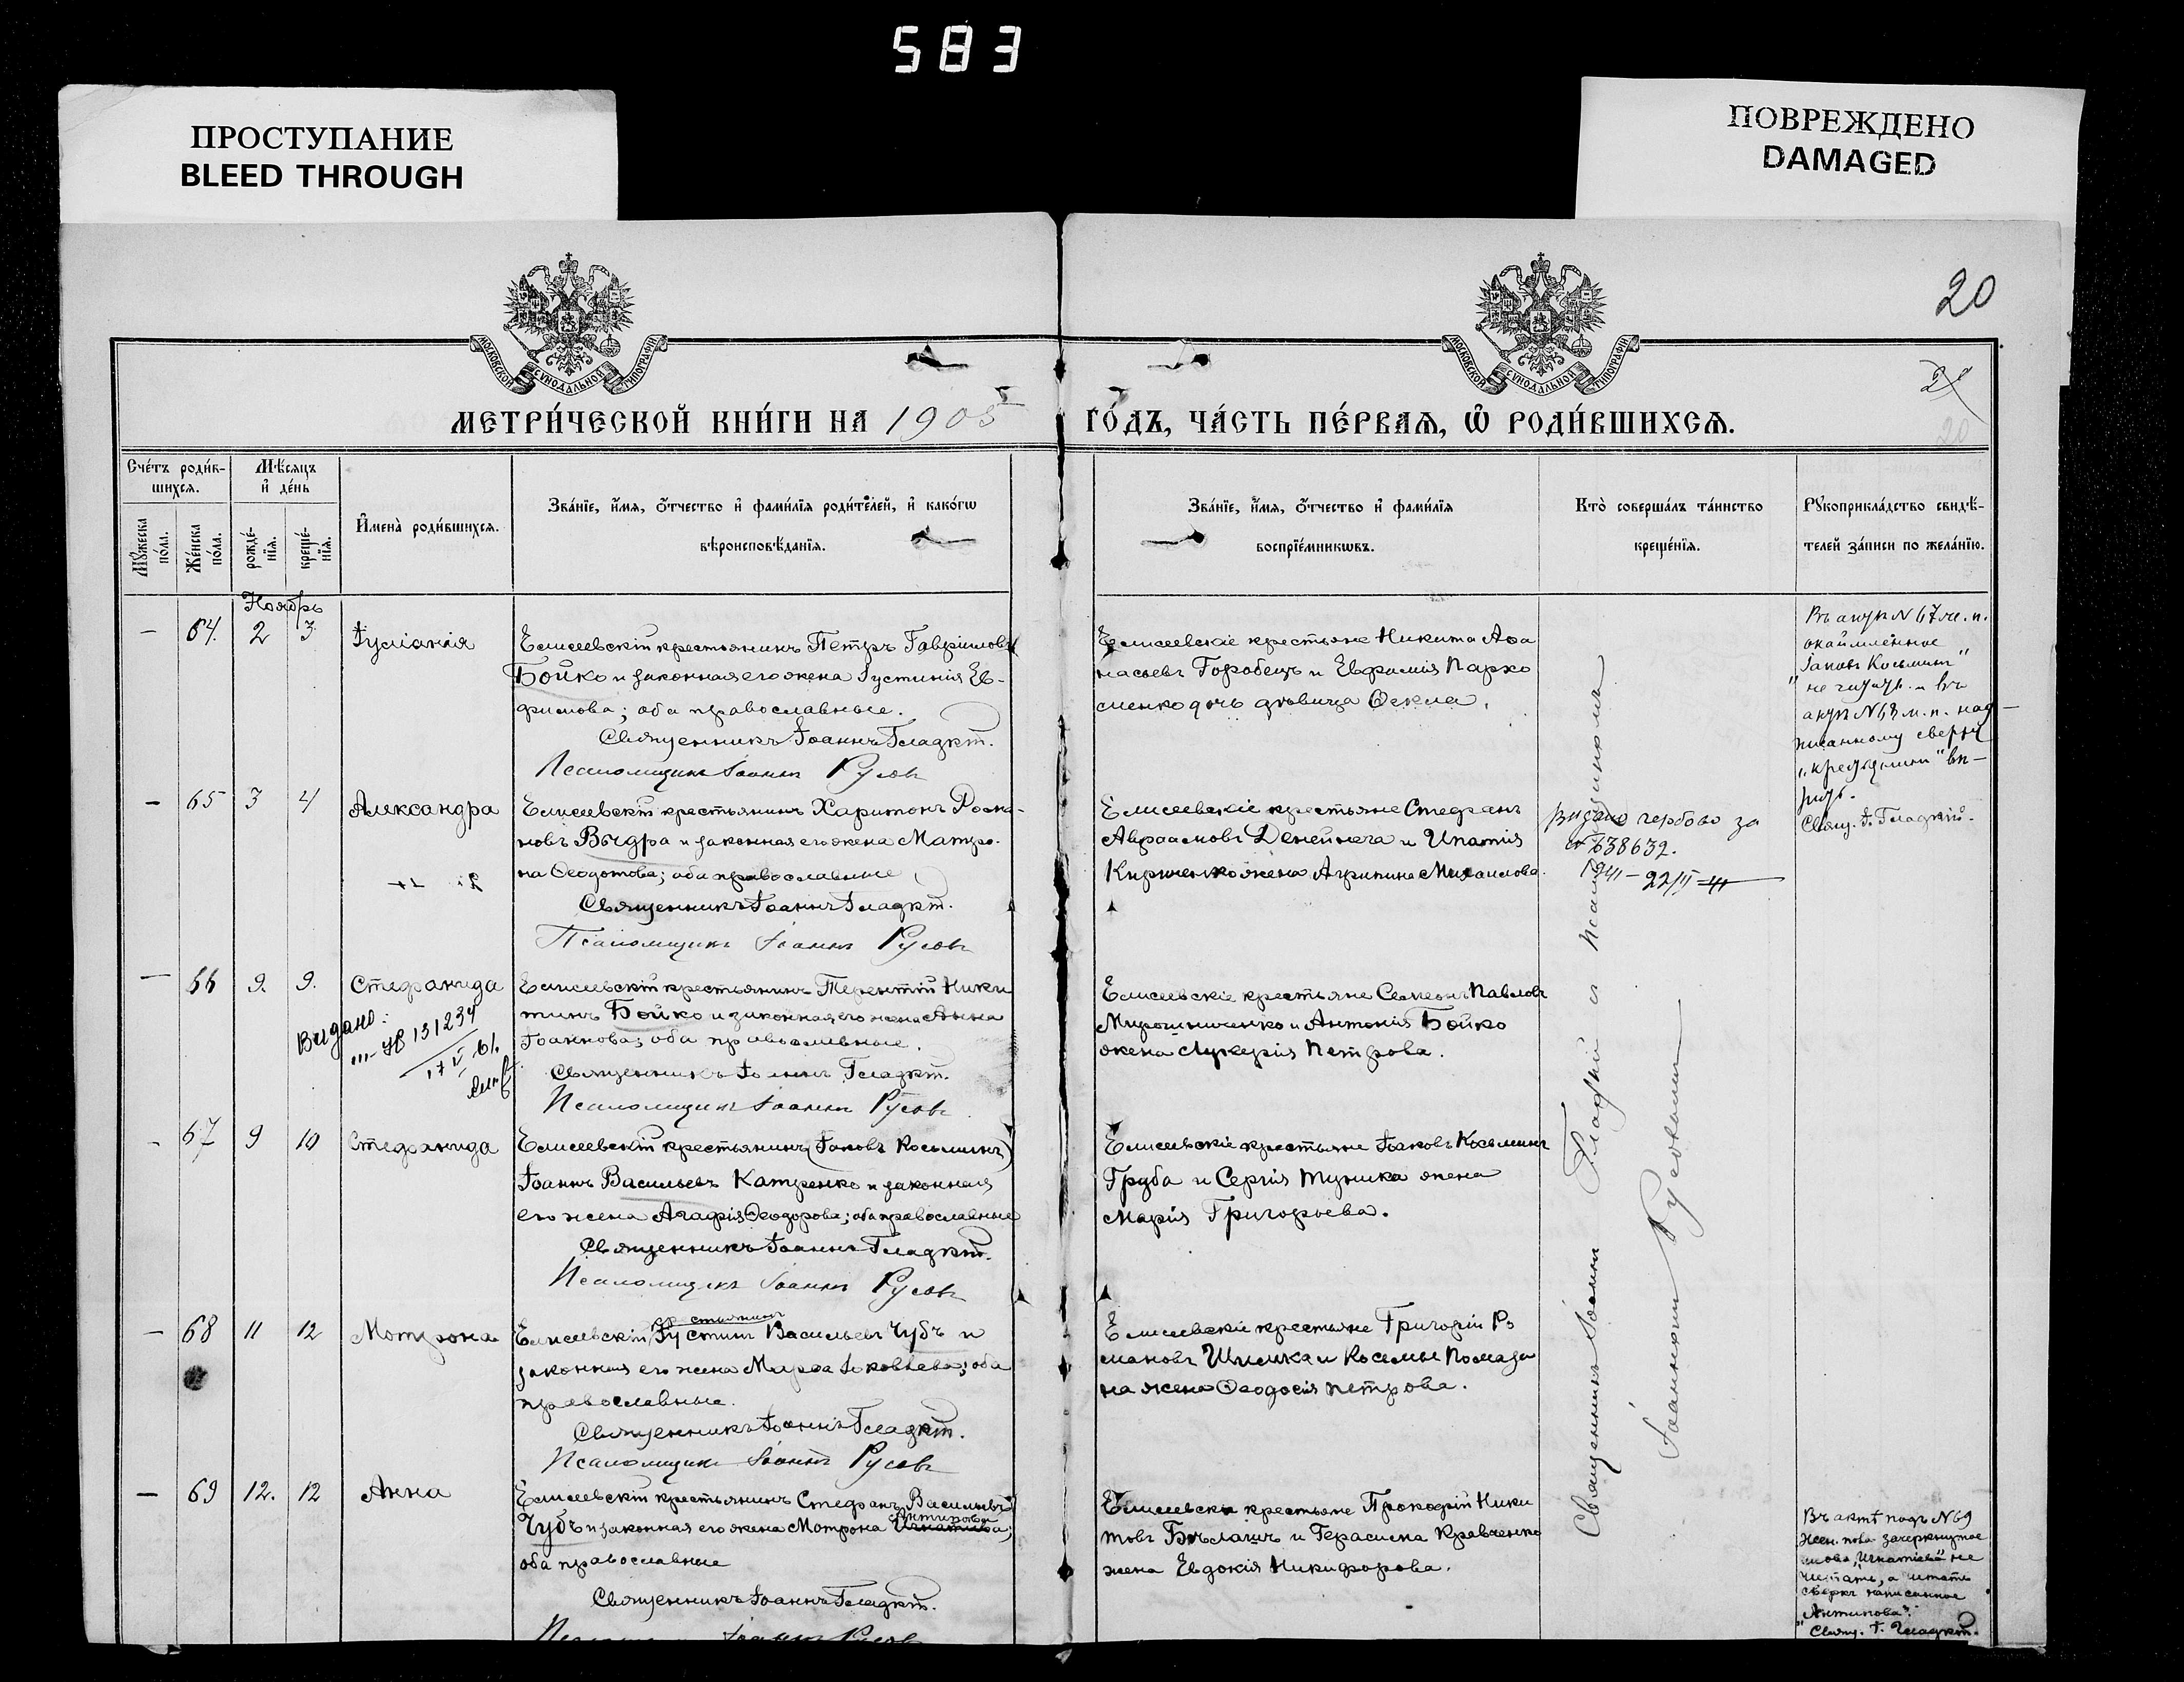 583
ПРОСТУПАНИЕ
BLEED THROUGH
ПОВРЕЖДЕНО
DAMAGED
20
МОСКОВСКОЙ СѴНОДАЛЬНОЙ ТИПОГРАФІИ
МОСКОВСКОЙ СѴНОДАЛЬНОЙ ТИПОГРАФІИ
МЕТРИ́ЧЕСКОЙ КНИ́ГИ НА 1905 ГО́ДЪ, ЧА́СТЬ ПЕ́РВАѦ, Ѽ РОДИ́ВШИХСѦ.
20
Сче́тъ роди́в-
шихсѧ.
Мѣ́сѧцъ
и҆ де́нь
Мꙋ́жеска по́ла.
Же́нска по́ла.
рожде́-
нїѧ.
креще́-
нїѧ.
И҆мена̀ роди́вшихсѧ.
Зва́нїе, и҆́мѧ, ѻ҆́тчество и҆ фами́лїѧ роди́телей, и҆ како́гѡ
вѣроисповѣ́данїѧ.
Зва́нїе, и҆́мѧ, ѻ҆́тчество и҆ фами́лїѧ
воспрїе́мникѡвъ.
Кто̀ соверша́лъ та́инство
креще́нїѧ.
Рꙋкоприкла́дство свидѣ́-
телей за́писи по жела́нїю.
Ноябрь
— 64. 2 3 Іуліанія
Елисеевскій крестьянинъ Петръ Гавріиловъ
Бойко и законная его жена Іустинія Ев-
фимова; оба православные.
Священникъ Іоаннъ Гладкій.
Псаломщикъ Іоаннъ Русовъ
Елисеевскіе крестьяне Никита Аѳа
насьевъ Горобецъ и Евфимія Пархо
менко дочь дѣвица Ѳекла.
Въ актѣ N 67 ж. п.
окаймленное
"Іаковъ Косьминъ"
не читать и въ
актѣ N 68 ж. п. над-
писанному сверху
„крестьянин" вѣ-
рить.
Свящ. І. Гладкій.
— 65 3 4 Александра
Елисеевскій крестьянинъ Харитонъ Рома-
новъ Выдра и законная его жена Матро-
на Ѳеодотова; оба православные
Священникъ Іоаннъ Гладкій.
Псаломщикъ Іоаннъ Русовъ
Елисеевскіе крестьяне Стефанъ
Авраамовъ Денейнега и Ипатія
Кириченко жена Агрипина Михаилова.
Видано гербово за
638632.
22/II
— 66 9. 9. Стефанида
Видано:
131234
17 V 61.
Елисеевскій крестьянинъ Терентій Ники
тинъ Бойко и законная его жена Анна
Іоаннова; оба православные.
Священникъ Іоаннъ Гладкій.
Псаломщикъ Іоаннъ Русовъ
Елисеевскіе крестьяне Симеонъ Павловъ
Мирошниченко и Антонія Бойко
жена Лукерія Петрова.
— 67 9 10 Стефанида
Елисеевскій крестьянинъ (Іаковъ Косьминъ)
Іоаннъ Васильевъ Катренко и законная
его жена Агафія Ѳеодорова; оба православные
Священникъ Іоаннъ Гладкій.
Псаломщикъ Іоаннъ Русовъ
Елисеевскіе крестьяне Іаковъ Косьминъ
Груба и Сергія Тупика жена
Марія Григорьева.
— 68 11 12 Мотрона
крестьянин
Елисеевскій Іустинъ Васильевъ Чубъ и
законная его жена Марѳа Іаковлева; оба
православные.
Священникъ Іоаннъ Гладкій.
Псаломщикъ Іоаннъ Русовъ
Елисеевскіе крестьяне Григорій Ро
мановъ Шимка и Косьмы Помаза
на жена Ѳеодосія Петрова.
— 69 12. 12 Анна
Елисеевскій крестьянинъ Стефанъ Васильевъ
Антипова
Чубъ и законная его жена Мотрона Игнатіева;
оба православные
Священникъ Іоаннъ Гладкій.
Псаломщикъ Іоаннъ Русовъ
Елисеевскіе крестьяне Прокофій Ники
товъ Бѣлашъ и Герасима Кравченко
жена Евдокія Никифорова.
Священникъ Іоаннъ Гладкій и псаломщикомъ
Іоанномъ Русовымъ
Въ актѣ подъ N 69
жен. пола зачеркнутое
слово „Игнатіева" не
читать, а читать
сверхъ написанное
„Антипова".
Свящ. І. Гладкій.